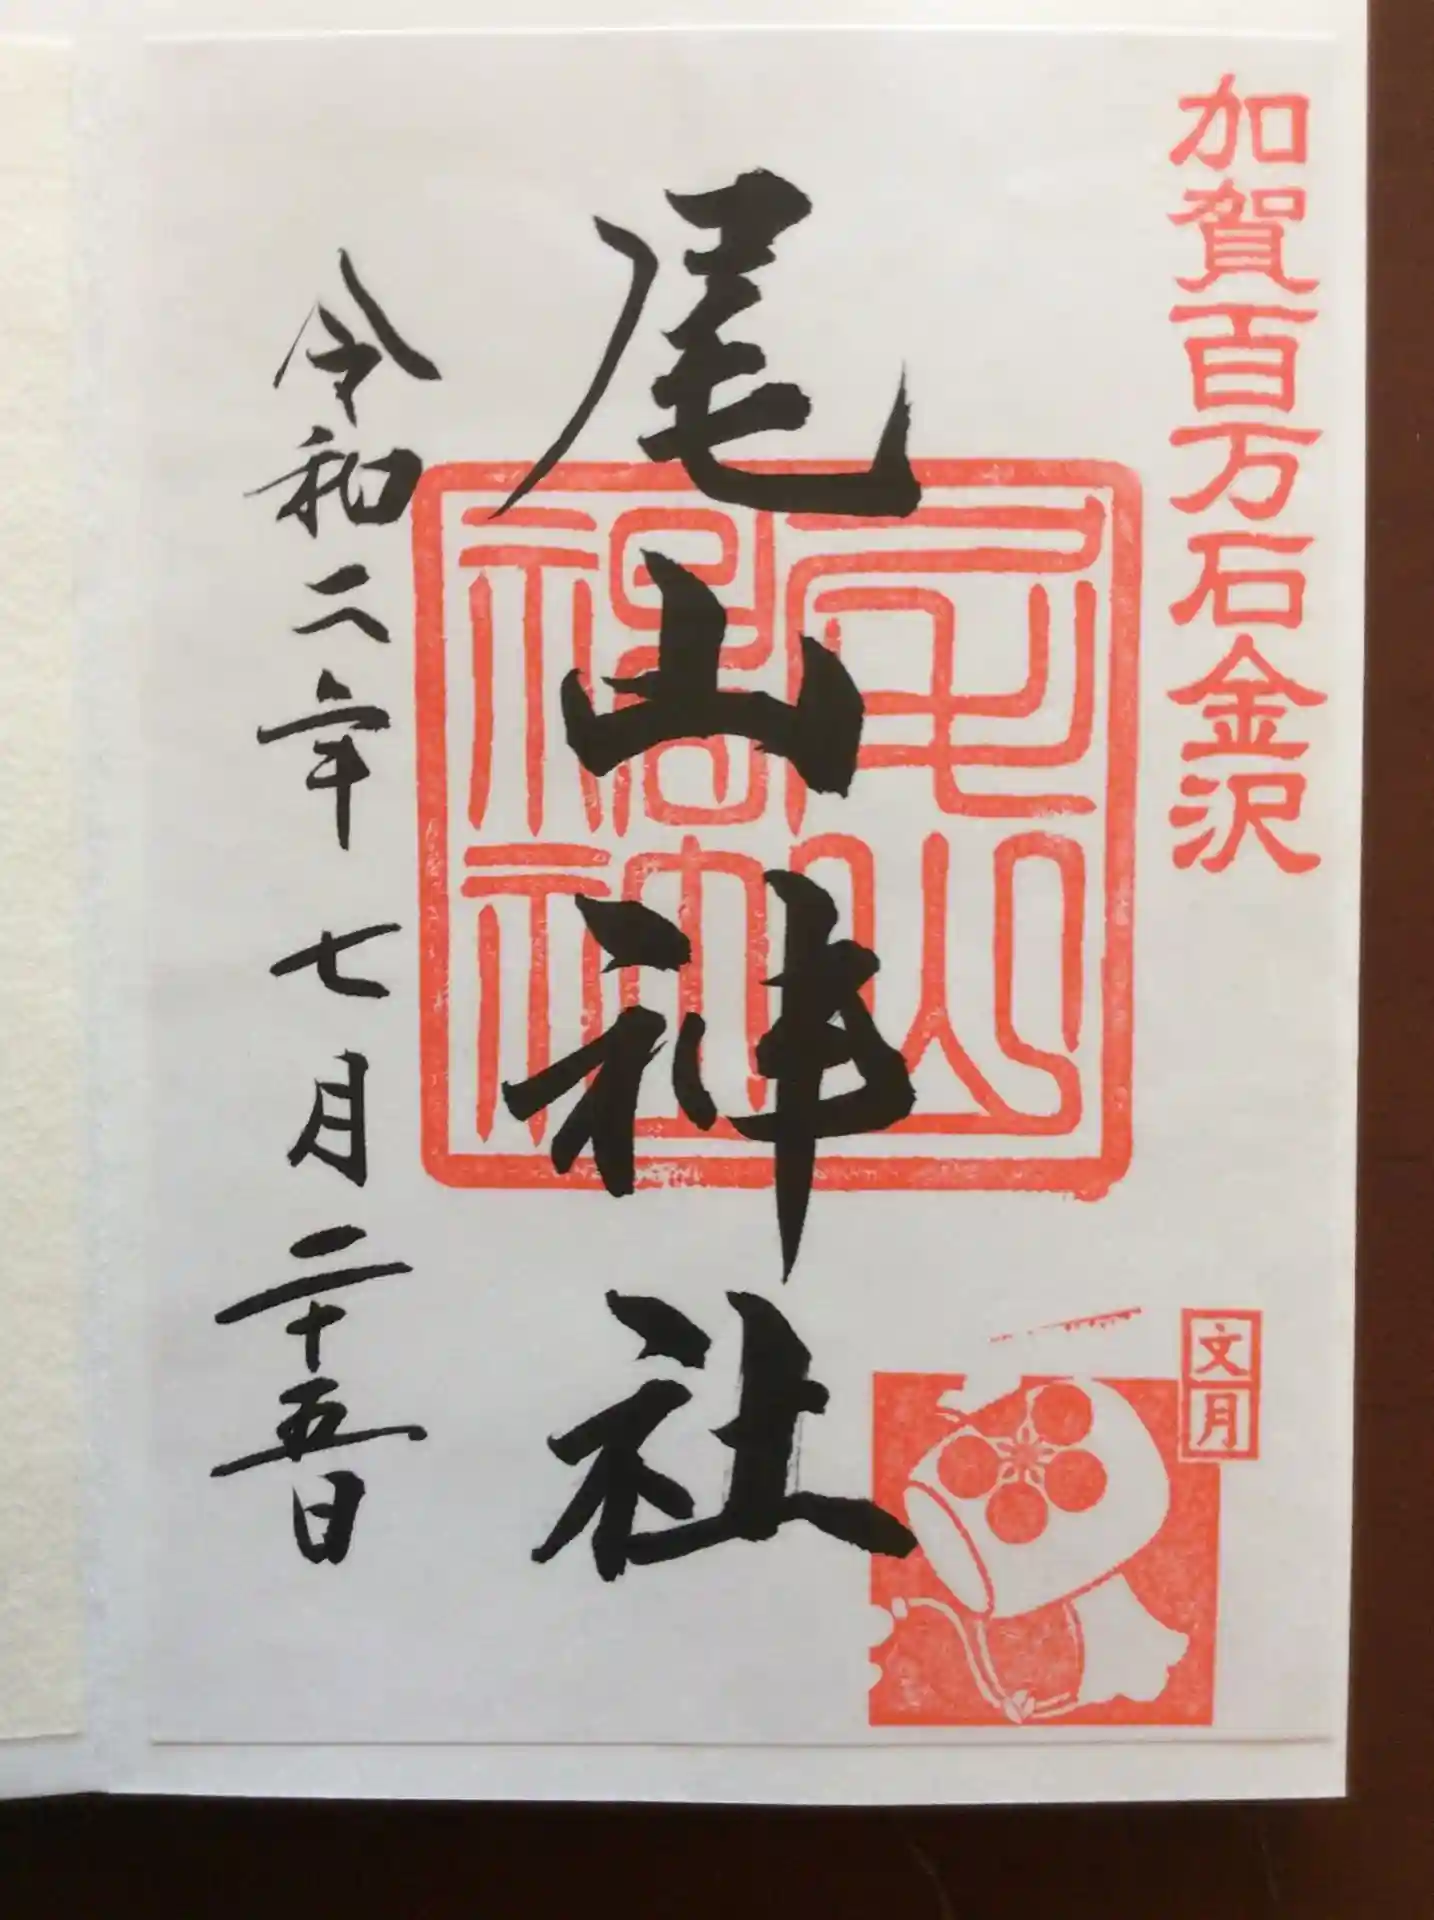 加賀百万石金沢
尾山神社
尾山
神社
文月
令和二年七月二十五日